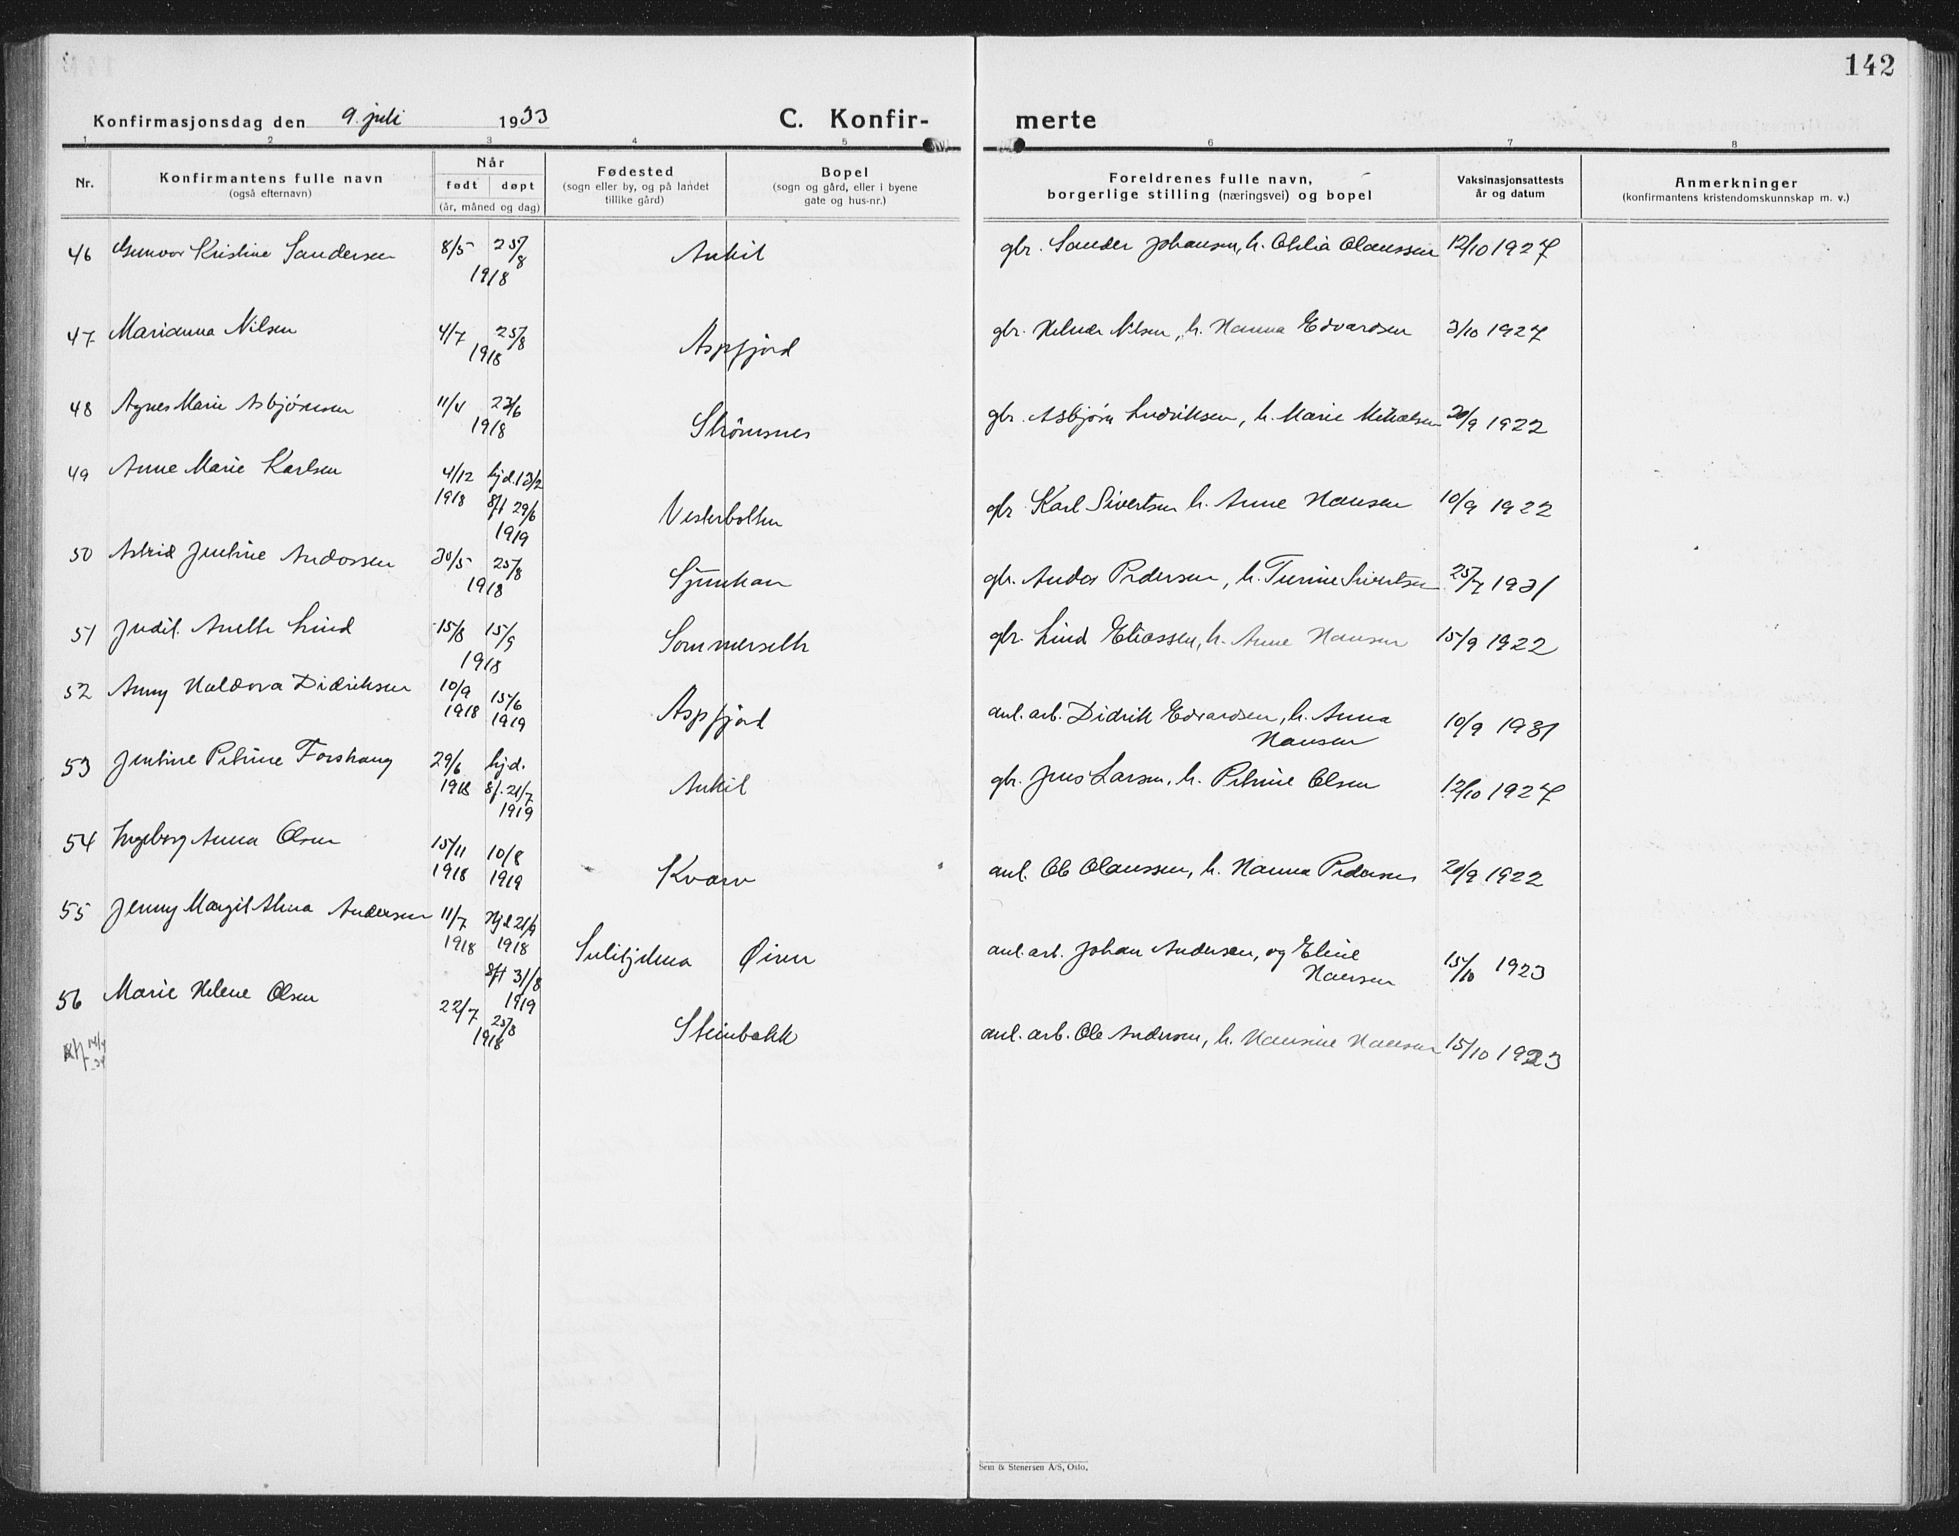 142
Konfirmasjonsdag den 9. juli 1933
C. Konfir- merte
1 2 3 4 5 6 7 8
Nr.
Konfirmantens fulle navn
(også efternavn)
Når
født døpt
(år, måned og dag)
Fødested
(sogn eller by, og på landet
tillike gård)
Bopel
(sogn og gård, eller i byene
gate og hus-nr.)
Foreldrenes fulle navn,
borgerlige stilling (næringsvei) og bopel
Vaksinasjonsattests
år og datum
Anmerkninger
(konfirmantens kristendomskunnskap m. v.)
46 Gunvor Kristine Sandersen 8/5 25/8 1918 Ankil gbr. Sander Johansen, h. Otilia Olaussen 12/10 1927
47 Marianna Nilsen 4/7 25/8 1918 Aspfjord gbr. Nilsen, h. Hanna Edvardsen 3/10 1927
48 Agnes Marie Asbjørnsen 11/4 23/6 1918 Strømsnes gbr. Asbjørn h. Marie Mikalsen 20/9 1922
49 Anne Marie Karlsen 4/12 1918 hjd. 13/2 sft 29/6 1919 Vesterbotten gbr Karl Sivertsen h. Anne Hansen 10/9 1922
50 Astrid Jentine Andorsen 30/5 25/8 1918 gbr. Andor Pedersen, h. Sivertsen 25/7 1931
51 Judit Anette Lind 15/8 15/9 1918 Sommerseth gbr. Lind Eliassen, h. Anne Hansen 15/9 1922
52 Anny Haldora Didriksen 10/9 1918 15/6 1919 Aspfjord anl. arb. Didrik Edvardsen, h. Anna
Hansen 10/9 1931
53 Jentine Petrine Forshaug 29/6 1918 hjd. sf. 21/7 1919 Ankil gbr. Jens Larsen, h. Petrine Olsen 12/10 1927
54 Ingeborg Anna Olsen 15/11 1918 10/8 1919 Kvarv anl. Ole Olaussen, h. Hanna Pedersen 20/9 1922
55 Jenny Margit Alma Andersen 11/7 1918 Hjd 21/9 1918 sft 31/8 1919 Sulitjelma Øiren anl. arb. Johan Andersen, og Eline
Hansen 15/10 1923
56 Marie Helene Olsen 22/7 25/8 1918 Steinbakk anl. arb. Ole Andersen, h. Hansine Hansen 15/10 1923
14/4
-34
Sem & Stenersen A/S, Oslo.